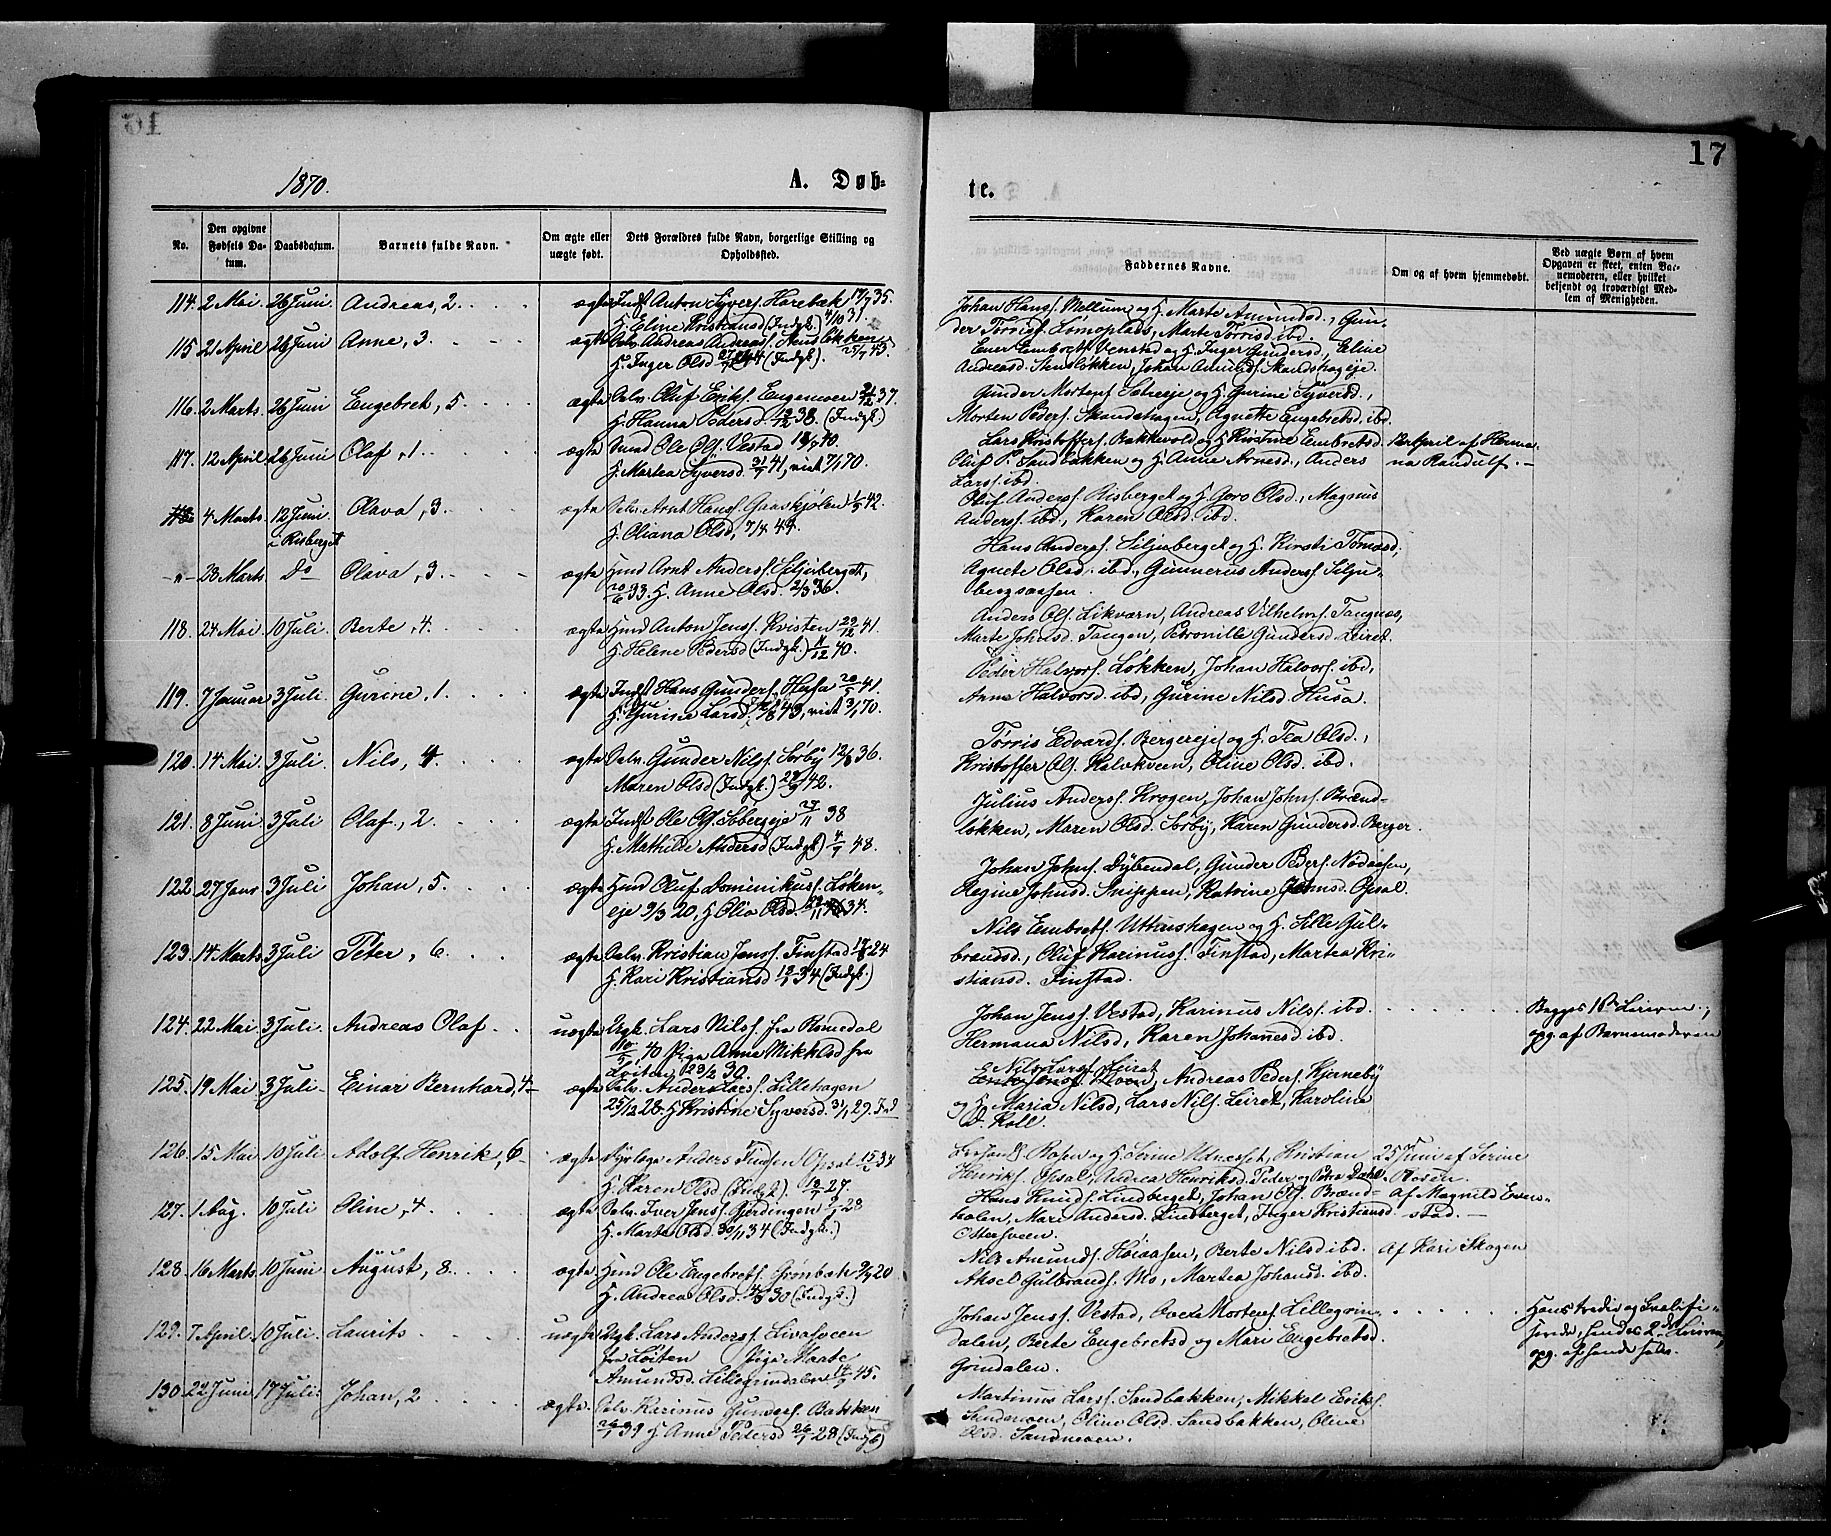 17
1870.
A. Døb-
te.
No.
Den opgivne Fødsels Da-tum.
Daabsdatum.
Barnets fulde Navn.
Om ægte eller uægte født.
Dets Forældres fulde Navn, borgerlige Stilling og Opholdssted.
Faddernes Navne.
Om og af hvem hjemmedøbt.
Ved uægte Børn af hvem Opgaven er skeet, enten Bar-nemoderen, eller hvilket bekjendt og troværdigt Med-lem af Menigheden.
114. 2 Mai 26 Juni Andreas, 2. ægte Indst Anton Syvers. Harebæk 17/7 35.
H. Eline Kristiansd (Indgk.) 4/10 31.
Johan Hans. Mellum og H. Marte Amundsd., Gun-
der Torrisf. Lomoplads, Marte Torrisd ibd.
115 21 April 26 Juni Anne, 3. ægte Selv. Andreas Andreas. Stensløkken 25/7 43.
H. Inger Olsd 44 (Indgk.).
Ener Embretf. Venstad og H. Inger Gundersd, Eline
Andreasd. Stensløkken, Johan Amundsf. Skandshageje.
116. 2 Marts 26 Juni Engebret, 5. ægte Selv. Oluf Eriks. Engemoen 37.
H. Hanna Pedersd. 38. (Indgk.)
Gunder Mortens. og H. Gurine Syversd.,
Morten Peders. Skandshagen, Agnethe Engebretsd ibd.
117. 12 April 26 Juni Olaf, 1. ægte Smed Ole Ols. Vestad 40.
H. Martea Syversd. 41, viet 7/1 70.
Lars Kristoffers. Bakkevold og H. Kirstine Embretsd
Oluf P. Sandbakken og H. Anne Arnesd., Anders
Larss. ibd.
12 April af Herma-
na Randulf.
4 Marts 12 Juni i Risberget Olava, 3. ægte Selv. Arnt Hans. Gaaskjølen 1/5 42.
H. Oliana Olsd, 7/4 44.
Oluf Anders. Risberget og H. Goro Olsd., Magnus
Anders. ibd., Karen Olsd. ibd.
-"- 28 Marts Do Olava, 3. ægte Hmd Arnt Anders. Siljuberget,
20/6 33. H. Anne Olsd. 2/3 36.
Hans Anders. Siljuberget og H. Kirsti Tomasd,
Agnete Olsd. ibd., Gunnerus Anders. Silju-
bergsaasen.
118. 24 Mai 10 Juli Berte, 4. ægte Hmd Anton Jens. Kvisten 29/12 41.
H. Helene Pedersd (Indgk.) 11/12 40.
Anders Ols. Likvern, Andreas Vilhelms. Tangnes,
Marte Johsd. Tangen, Petronille Gundersd. Leiret.
119. 7 Januar 3 Juli Gurine, 1. ægte Indst Hans Gunders. Husa 20/5 41.
H. Gurine Larsd. 43, viet 3/1 70.
Peder Halvors. Løkken, Johan Halvors. ibd,
Anne Halvorsd. ibd, Gurine Nilsd. Husa.
120. 14 Mai 3 Juli Nils, 4. ægte Selv. Gunder Nils. Sørby 12/8 36.
Maren Olsd (Indgk.) 42.
Torris Edvards. Bergereje og H. Tea Olsd.,
Kristoffer Ols. Kalvkveen, Oline Olsd. ibd.
121. 8 Juni 3 Juli Olaf, 2. ægte Indst Ole Ols. Ebbergeje 27/11 38
H. Mathilde Andersd (Indgk.) 4/7 48.
Julius Anders. Krogen, Johan Johs. Brænd-
løkken, Maren Olsd. Sørby, Karen Gundersd. Berger.
122 27 Janr 3 Juli Johan, 5. ægte Hmd Oluf Dominikus. Løken-
eje 9/3 20, H. Olia Olsd. 34.
Johan Johs. Dybendal, Gunder Peders. Nødaasen,
Regine Johsd. Snippen, Katrine Johsd. Opsal.
123. 14 Marts 3 Juli Peter, 6. ægte Selv. Kristian Jens. Finstad 24
H. Kari Kristiansd 34 (Indgk.)
Nils Embrets. Uthushagen og H. Eille Gul-
brandsd., Oluf Karinus. Finstad, Martea Kri-
stiansd. Finstad.
124. 22 Mai 3 Juli. Andreas Olaf uægte Ugk. Lars Nils. fra Romedal
40 Pige Anne Mikklsd fra
Løiten 23/2 30.
Johan Jens. Vestad, Karinus Nils. ibd.
Hermana Nilsd, Karen Johannesd ibd.
Begges 1ste Leierm.,
opg. af Barnemoderen
125. 19 Mai 3 Juli Einar Bernhard, 4 ægte Selv. Anders Larss. Lillehagen
25/12 28. H Kristine Syversd. 31/1 29.
Nils Lars. Leiret
Andreas Peders. Kjerneby
og H Maria Nilsd, Lars Nils. Leiret, Karoline
D. Koll.
126. 15 Mai 10 Juli Adolf Henrik, 6 ægte Anders Finsen Opsal 34
H. Karen Olsd (Indgk.) 27.
Rosen og H. Serine Udnesset, Kristian
Henriks. Opsal, Andrea Henriksd.
25 Juni af Serine
Rosen.
127. 1 Aug. 10 Juli Oline, 4 ægte Selv. Iver Jens. Gjerdingen 28
H. Marte Olsd. 30/11 34 (Indgk.)
Hans Knuds. Lindberget, Johan Ols. Brænd-
holen, Mari Andersd. Lindberget, Inger Kristiansd
Østersveen.
af Magnild Even-
stad.
128. 16 Marts 10 Juni August, 8. ægte Hmd Ole Engebrets. Grønbæk 9/9 20
H. Andrea Olsd. 30 (Indgk.)
Nils Amunds. Høiaasen, Berte Nilsd ibd.
Aksel Gulbrands. Mo, Martea Johansd. ibd.
af Kari Skogen
129. 7 April 10 Juli. Laurits uægte Ugk. Lars Anders. Livasveen
fra Løiten Pige Marte
Amundsd. Lillegrindalen 45.
Johan Jens. Vestad, Morten. Lillegrin-
dalen, Berte Engebretsd og Mari Engebretsd
Grindalen.
Hans tredie og
hendes 2det Leierm,
opg. af hende selv.
130. 22 Juni 17 Juli. Johan, 2 ægte. Selv. Karinus Gunders. Bakken
39 H Anne Pedersd 28 (Indgk)
Martinus Lars. Sandbakken, Mikkel Eriks.
Sandmoen, Oline Olsd. Sandbakken, Oline
Olsd. Sandmoen.